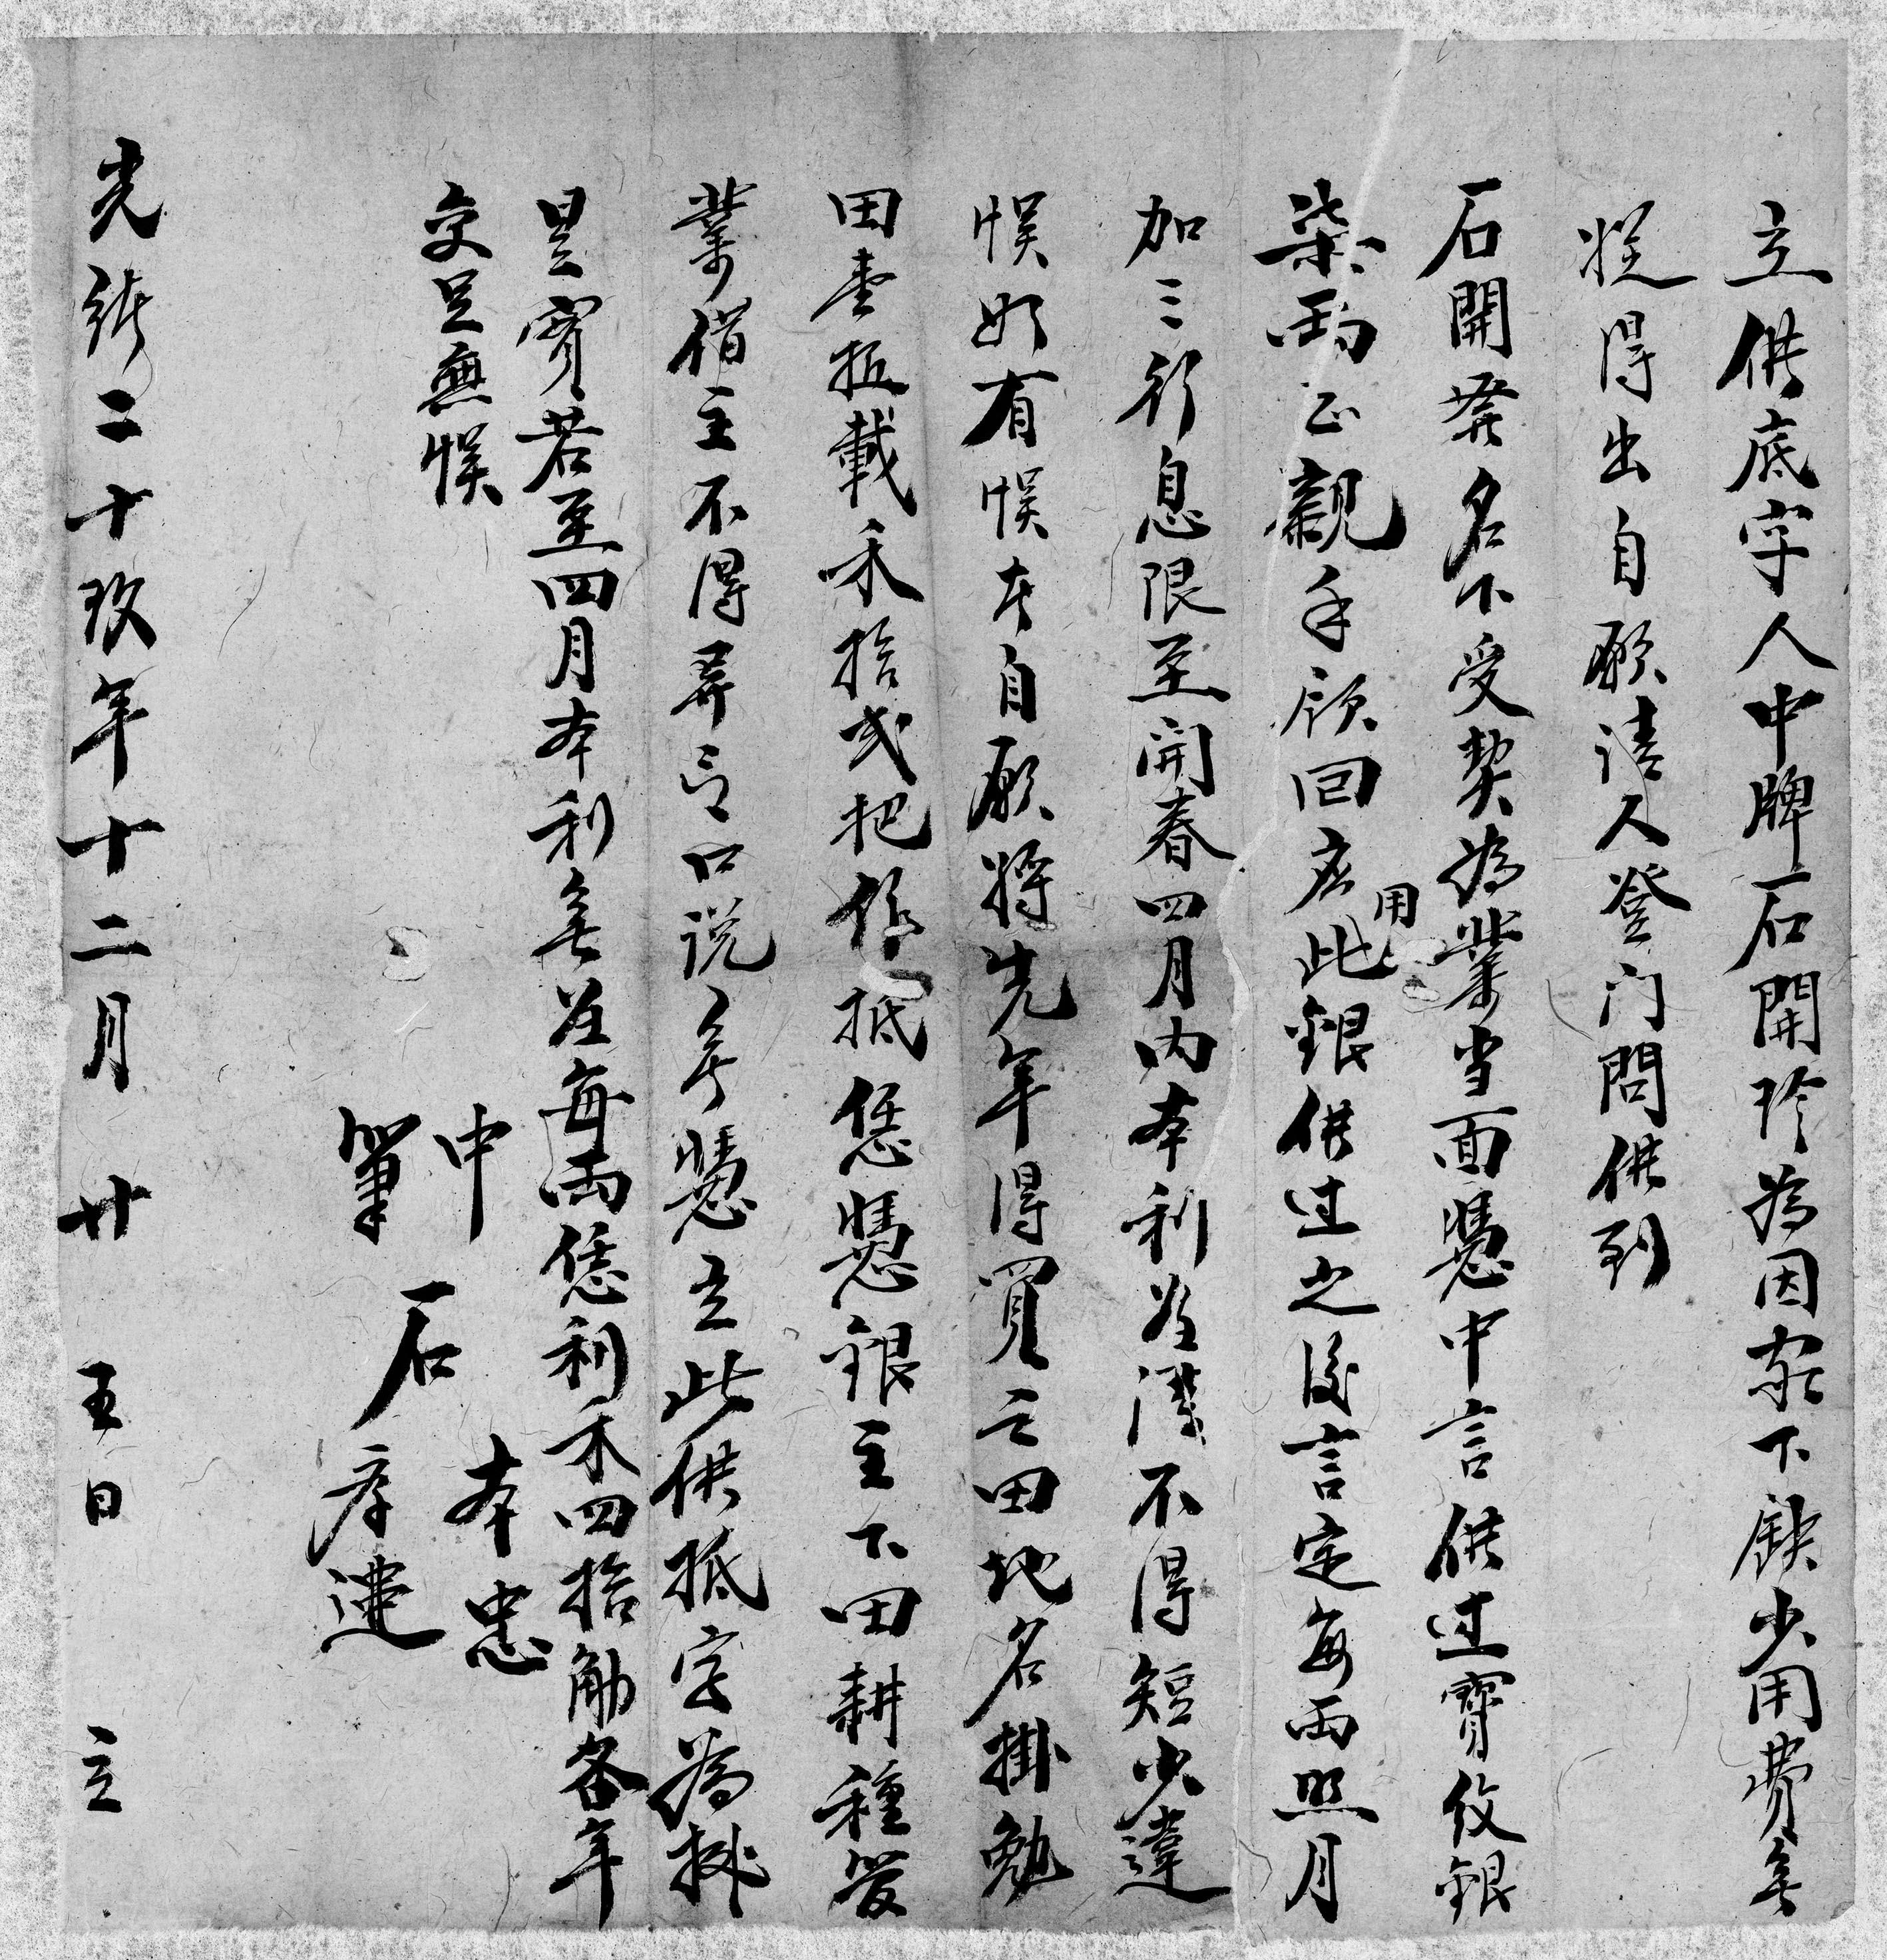 立供底字人中牌石開珍為因家下缺少用費無
從得出自願請人登门問供到
石開癸名下受契為業当面憑中言供过寳伩銀
柒両正親手領囘应用此銀供过之後言定每両照月
加三行息限至開春四月内本利為潔不得短少違
悮如有悮本自願將先年得買之田地名掛勉
田壹坵載禾拾弍把作抵恁憑銀主下田耕種管
業借主不得异言口説無憑立此供抵字為據
是實若至四月本利無為每両恁利禾四拾觔各年
交足無悮
中 本忠
筆 石彦達
光緒二十玖年十二月廿五日 立